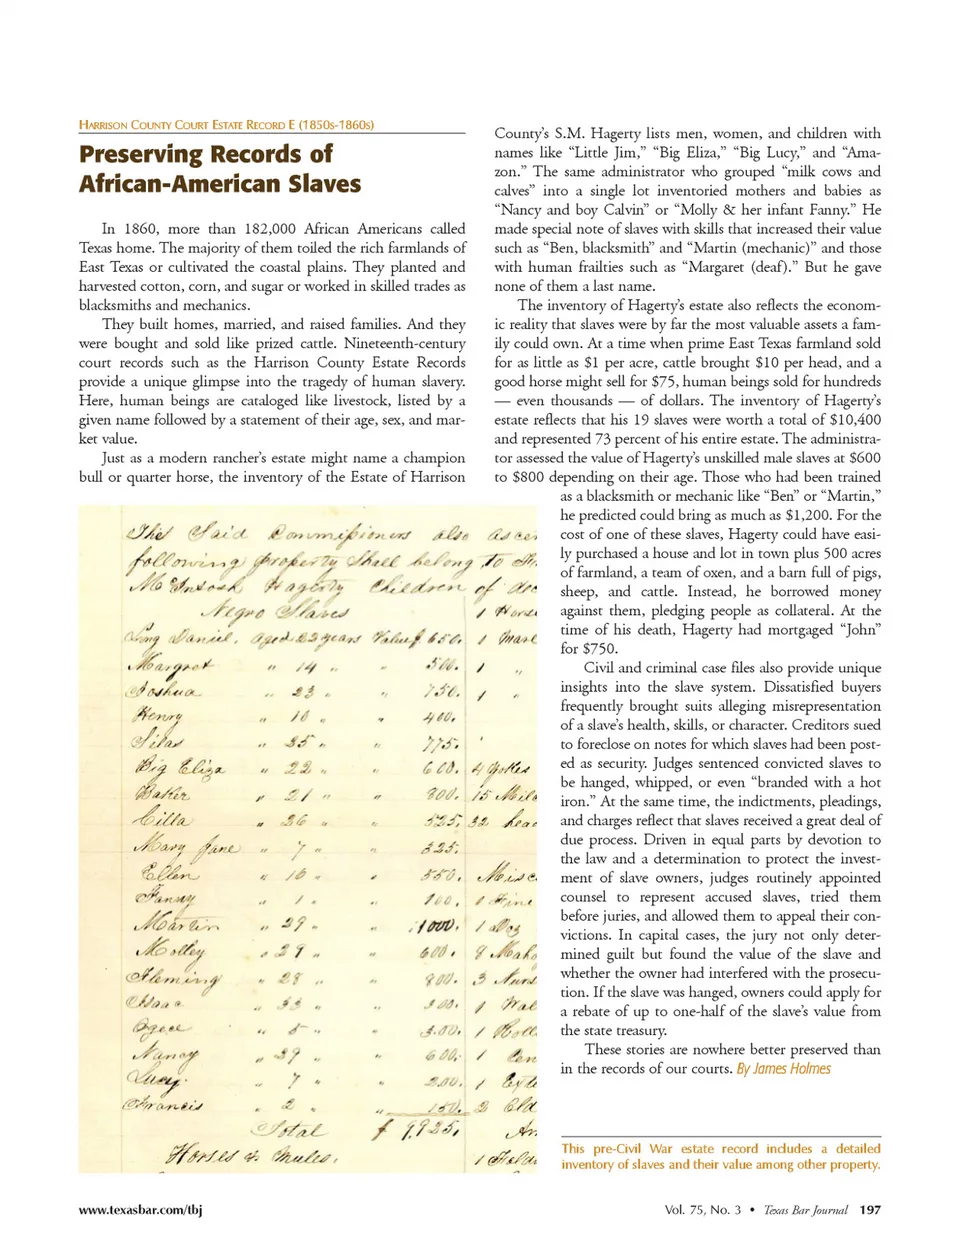 HARRISON COUNTY COURT ESTATE RECORD E (1850S-1860S)
Preserving Records of
African-American Slaves
In 1860, more than 182,000 African Americans called
Texas home. The majority of them toiled the rich farmlands of
East Texas or cultivated the coastal plains. They planted and
harvested cotton, corn, and sugar or worked in skilled trades as
blacksmiths and mechanics.
They built homes, married, and raised families. And they
were bought and sold like prized cattle. Nineteenth-century
court records such as the Harrison County Estate Records
provide a unique glimpse into the tragedy of human slavery.
Here, human beings are cataloged like livestock, listed by a
given name followed by a statement of their age, sex, and mar-
ket value.
Just as a modern rancher's estate might name a champion
bull or quarter horse, the inventory of the Estate of Harrison
County's S.M. Hagerty lists men, women, and children with
names like "Little Jim," "Big Eliza," "Big Lucy," and "Ama-
zon." The same administrator who grouped "milk cows and
calves" into a single lot inventoried mothers and babies as
"Nancy and boy Calvin" or "Molly & her infant Fanny." He
made special note of slaves with skills that increased their value
such as "Ben, blacksmith" and "Martin (mechanic)" and those
with human frailties such as "Margaret (deaf)." But he gave
none of them a last name.
The inventory of Hagerty's estate also reflects the econom-
ic reality that slaves were by far the most valuable assets a fam-
ily could own. At a time when prime East Texas farmland sold
for as little as $1 per acre, cattle brought $10 per head, and a
good horse might sell for $75, human beings sold for hundreds
— even thousands — of dollars. The inventory of Hagerty's
estate reflects that his 19 slaves were worth a total of $10,400
and represented 73 percent of his entire estate. The administra-
tor assessed the value of Hagerty's unskilled male slaves at $600
to $800 depending on their age. Those who had been trained
as a blacksmith or mechanic like "Ben" or "Martin,"
he predicted could bring as much as $1,200. For the
cost of one of these slaves, Hagerty could have easi-
ly purchased a house and lot in town plus 500 acres
of farmland, a team of oxen, and a barn full of pigs,
sheep, and cattle. Instead, he borrowed money
against them, pledging people as collateral. At the
time of his death, Hagerty had mortgaged "John"
for $750.
Civil and criminal case files also provide unique
insights into the slave system. Dissatisfied buyers
frequently brought suits alleging misrepresentation
of a slave's health, skills, or character. Creditors sued
to foreclose on notes for which slaves had been post-
ed as security. Judges sentenced convicted slaves to
be hanged, whipped, or even "branded with a hot
iron." At the same time, the indictments, pleadings,
and charges reflect that slaves received a great deal of
due process. Driven in equal parts by devotion to
the law and a determination to protect the invest-
ment of slave owners, judges routinely appointed
counsel to represent accused slaves, tried them
before juries, and allowed them to appeal their con-
victions. In capital cases, the jury not only deter-
mined guilt but found the value of the slave and
whether the owner had interfered with the prosecu-
tion. If the slave was hanged, owners could apply for
a rebate of up to one-half of the slave's value from
the state treasury.
These stories are nowhere better preserved than
in the records of our courts. By James Holmes
The Said Commissioners also
following property Shall belong to
McIntosh Hagerty Children of
Negro Slaves 1
Daniel, aged 22 years Value $ 650. 1
Margret " 14 " " 500. 1 "
Joshua " 23 " " 750. 1 "
Henry " 10 " " 400.
Silas " 35 " " 775.
Big Eliza " 22 " " 600. 4 Yokes
Baker " 21 " " 800. 15
Cilla " 26 " " 525. 32 head
Mary Jane " 7 " " 325.
Ellen " 16 " " 550.
Fanny " 1 " " 100. 1
Martin " 29 " " 1000. 1
Molley " 29 " " 600. 8
Fleming " 28 " " 800. 3
Isaac " 33 " " 1
" 5 " " 300. 1
Nancy " 39 " " 600. 1
Lucy " 7 " " 200. 1
Francis " 2 " " 150. 2
Total $ 9,925.
Horses & Mules. 1
This pre-Civil War estate record includes a detailed
inventory of slaves and their value among other property.
www.texasbar.com/tbj
Vol. 75, No. 3 • Texas Bar Journal 197